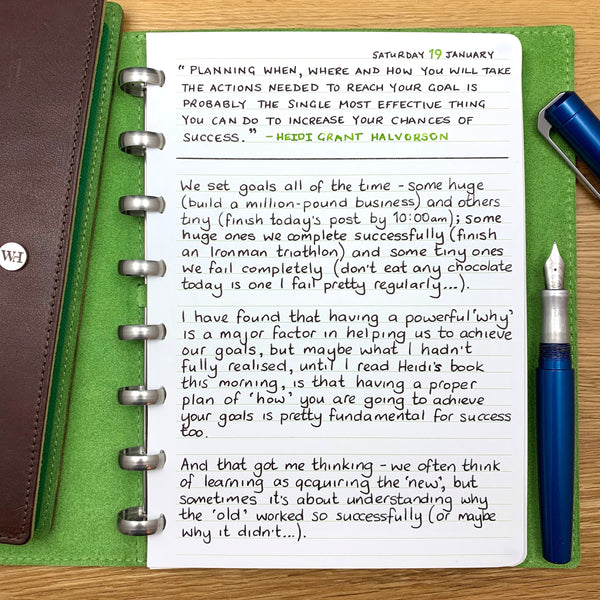 SATURDAY 19 JANUARY
" PLANNING WHEN, WHERE AND HOW YOU WILL TAKE
THE ACTIONS NEEDED TO REACH YOUR GOAL IS
PROBABLY THE SINGLE MOST EFFECTIVE THING
YOU CAN DO TO INCREASE YOUR CHANCES OF
SUCCESS. " - HEIDI GRANT HALVORSON
We set goals all of the time - some huge
(build a million-pound business) and others
tiny (finish today's post by 10:00am); some
huge ones we complete successfully (finish
an Ironman triathlon) and some tiny ones
we fail completely (don't eat any chocolate
today is one I fail pretty regularly...).
I have found that having a powerful 'why'
is a major factor in helping us to achieve
our goals, but maybe what I hadn't
fully realised, until I read Heidi's book
this morning, is that having a proper
plan of 'how' you are going to achieve
your goals is pretty fundamental for success
too.
And that got me thinking - we often think
of learning as acquiring the 'new', but
sometimes it's about understanding why
the 'old' worked so successfully (or maybe
why it didn't...).
WH